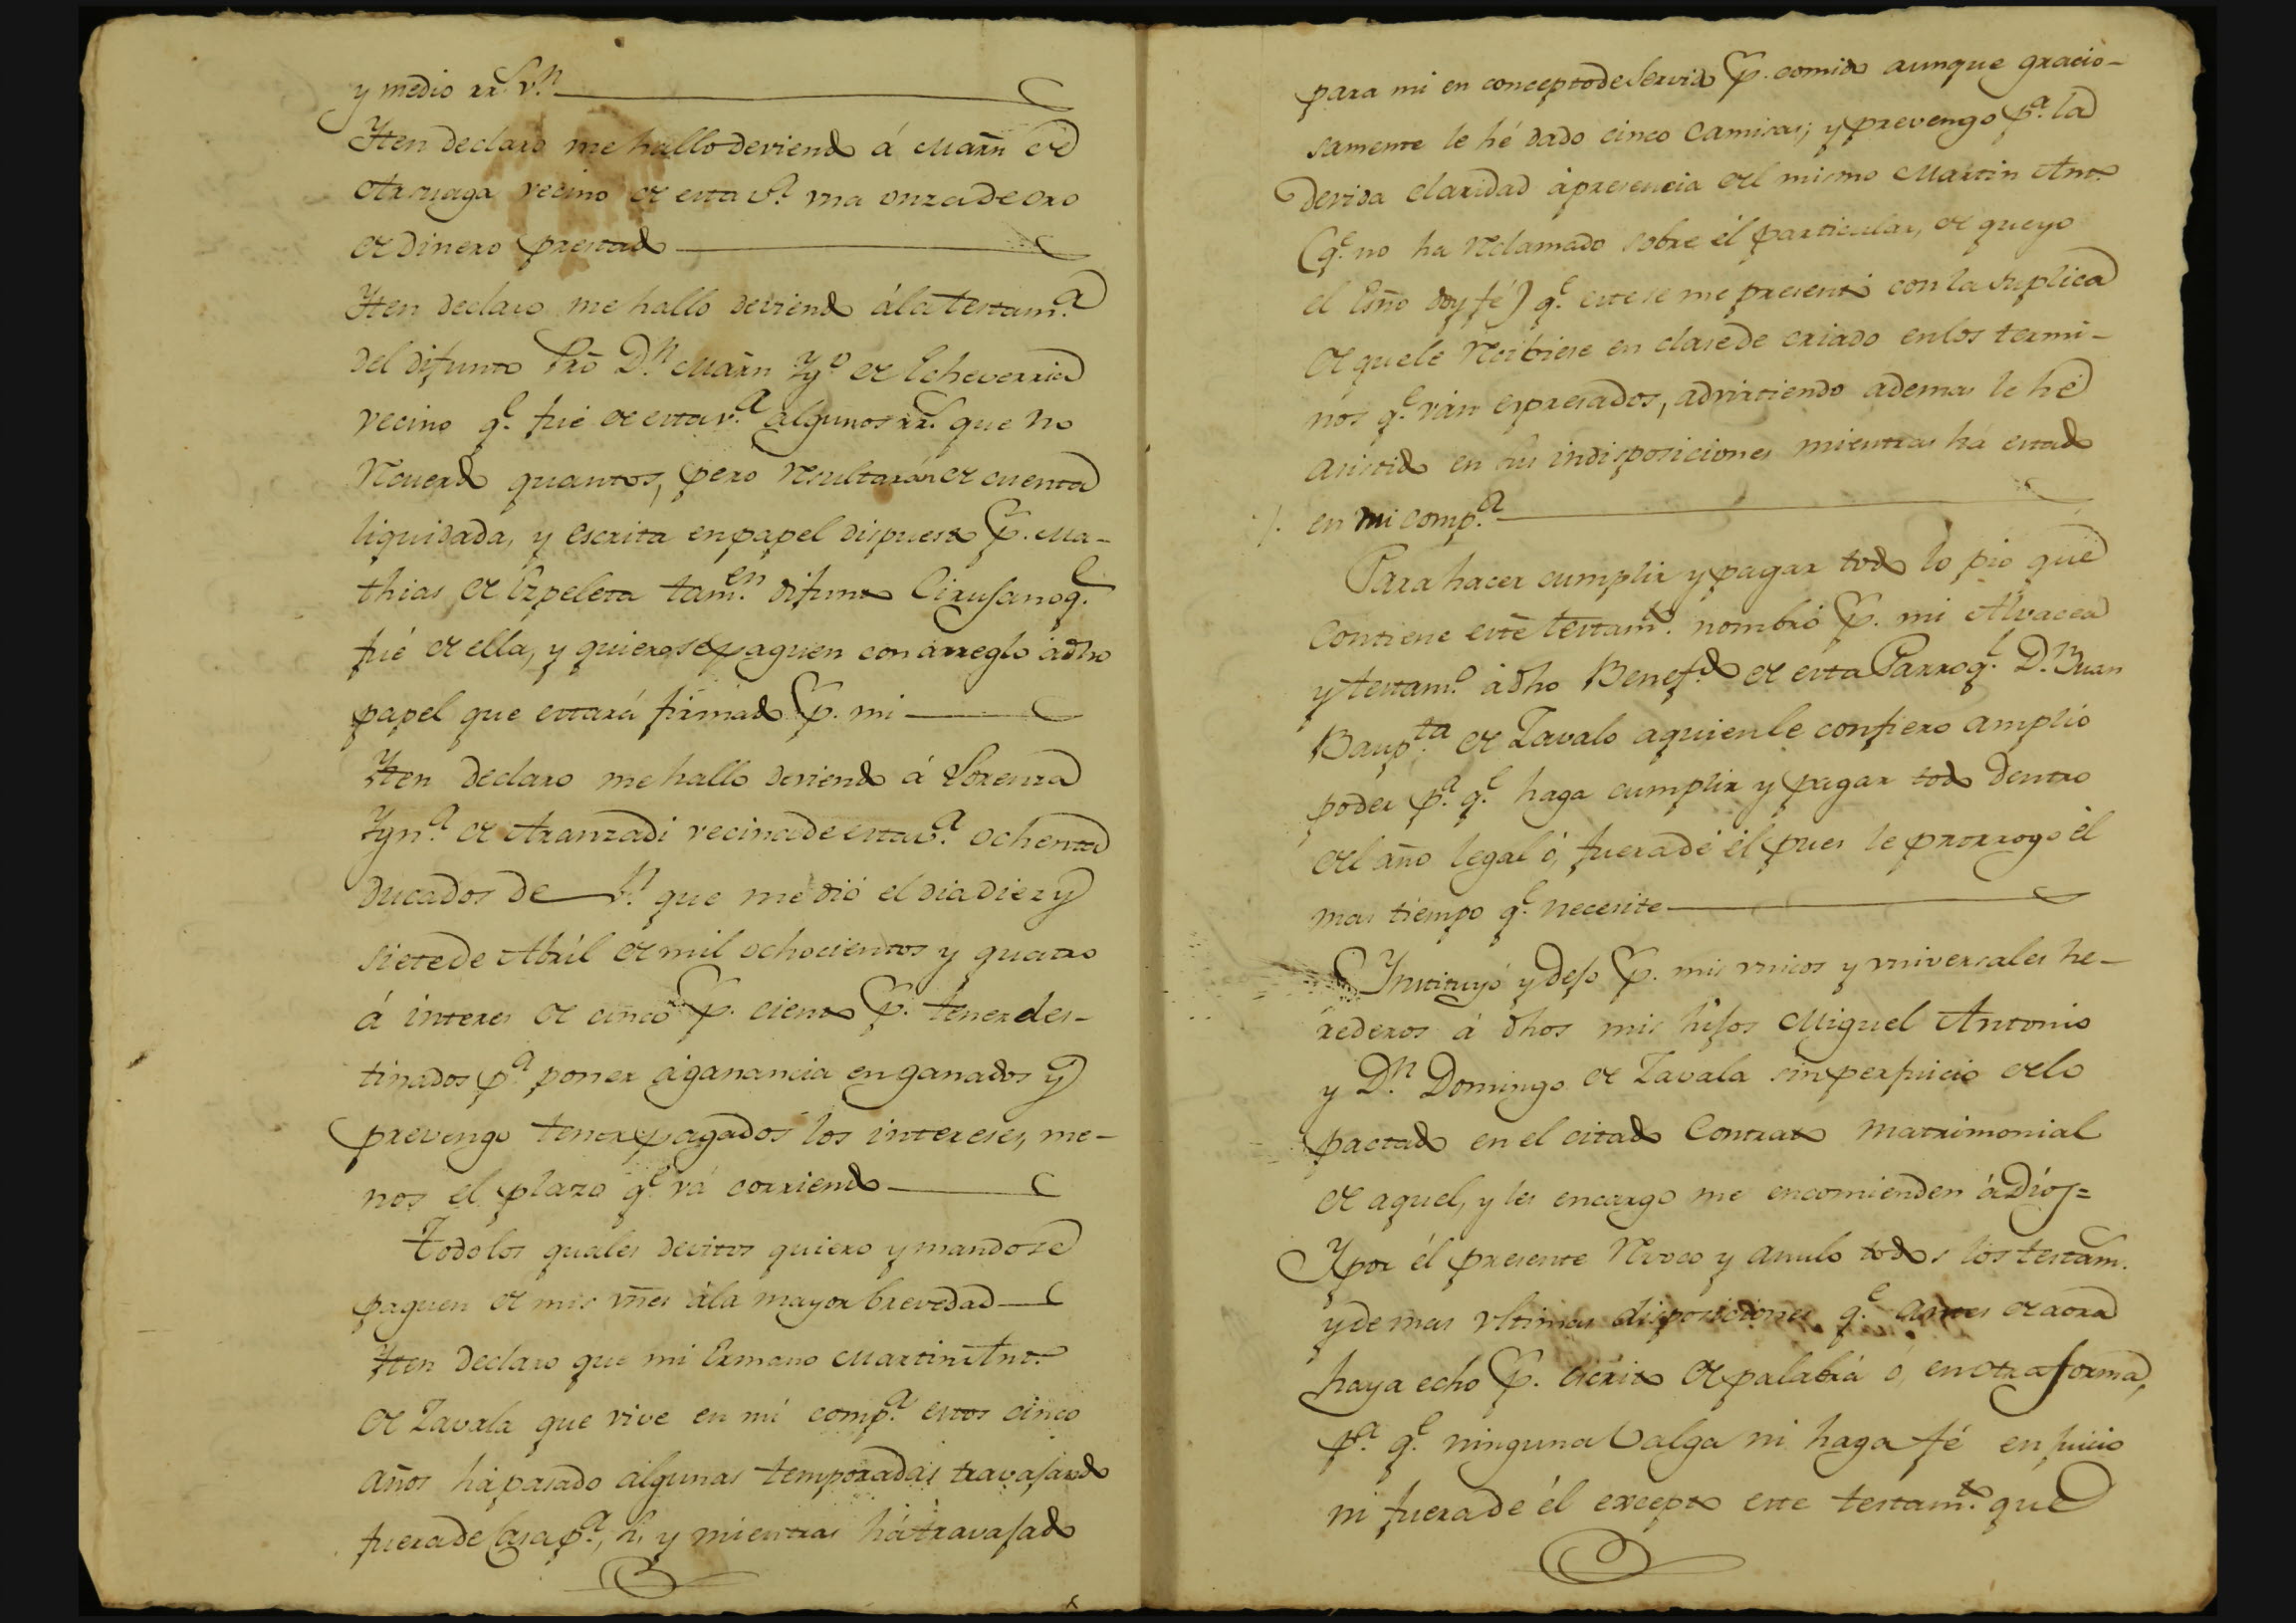 y medio rr.ˢ v.ⁿ
Yten declaro me hallo deviendo á Marñ de
Aruaga vecino de esta v.ª vna onza de oro
de dinero prestado
Yten declaro me hallo deviendo á la testam.ª
del difunto Pro D.ⁿ Marñ Yg.º de Echeverria
vecino q.ᵉ fué de esta v.ª algunos rr.ˢ que no
recuerdo quantos, pero resultarán de cuenta
liquidada, y escrita en papel dispuesto p. Ma-
thias de Ezpeleta tam.ᵉⁿ difunto Cirujano q.ᵉ
fué de ella, y quiero se paguen con arreglo á dho
papel que estará firmado p. mi
Yten declaro me hallo deviendo á Lorenza
Ygn.ª de Aranzadi vecina de esta v.ª ochenta
ducados de v.ⁿ que me dió el dia diez y
siete de Abril de mil ochocientos y quatro
á interes de cinco p. ciento p. tener des-
tinados p.ª poner á ganancia en ganados y
prevengo tener pagados los intereses, me-
nos el plazo q.ᵉ vá corriendo
Todo los quales devitos quiero y mando se
paguen de mis vñes á la mayor brevedad
Yten declaro que mi Ermano Martin Ant.º
de Zavala que vive en mi comp.ª estos cinco
años há pasado algunas temporadas travajando
fuera de Casa p.ª, h, y mientras há travajado
para mi en concepto de servido p. comida aunque gracio-
samente le hé dado cinco camisas; y prevengo p.ª la
devida claridad á presencia del mismo Martin Ant.º
(q.ᵉ no ha reclamado sobre él particular, de que yo
el Esño doy fé) q.ᵉ este se me presentó con la suplica
de que le recibiese en clase de criado en los termi-
nos q.ᵉ ván expresados, advirtiendo ademas le hé
asistido en sus indisposiciones mientras há estado
en mi comp.ª
Para hacer cumplir y pagar todo lo pio que
contiene este testam.ᵗᵒ nombró p. mi Alvacea
y testam.º á dho Benef.ᵈᵒ de esta Parroq.ˡ D.ⁿ Juan
Baup.ᵗᵃ de Zavalo a quien le confiero amplio
poder p.ª q.ᵉ haga cumplir y pagar todo dentro
del año legal ó, fuera de él pues le prorrogo él
mas tiempo q.ᵉ necesite
Instituyó y dejo p. mis vnicos y vniversales he-
rederos á dhos mis hijos Miguel Antonio
y D.ⁿ Domingo de Zavala sin perjuicio de lo
pactado en el citado Contrato matrimonial
de aquel, y les encargo me encomienden á Dios=
Y por él presente revoco y anulo todos los testam.ˢ
y demas vltimas disposiciones q.ᵉ antes de aora
haya echo p. escrito de palabra ó, en otra forma,
p.ª q.ᵉ ninguna valga ni haga fé en juicio
ni fuera de él excepto este testam.ᵗᵒ que